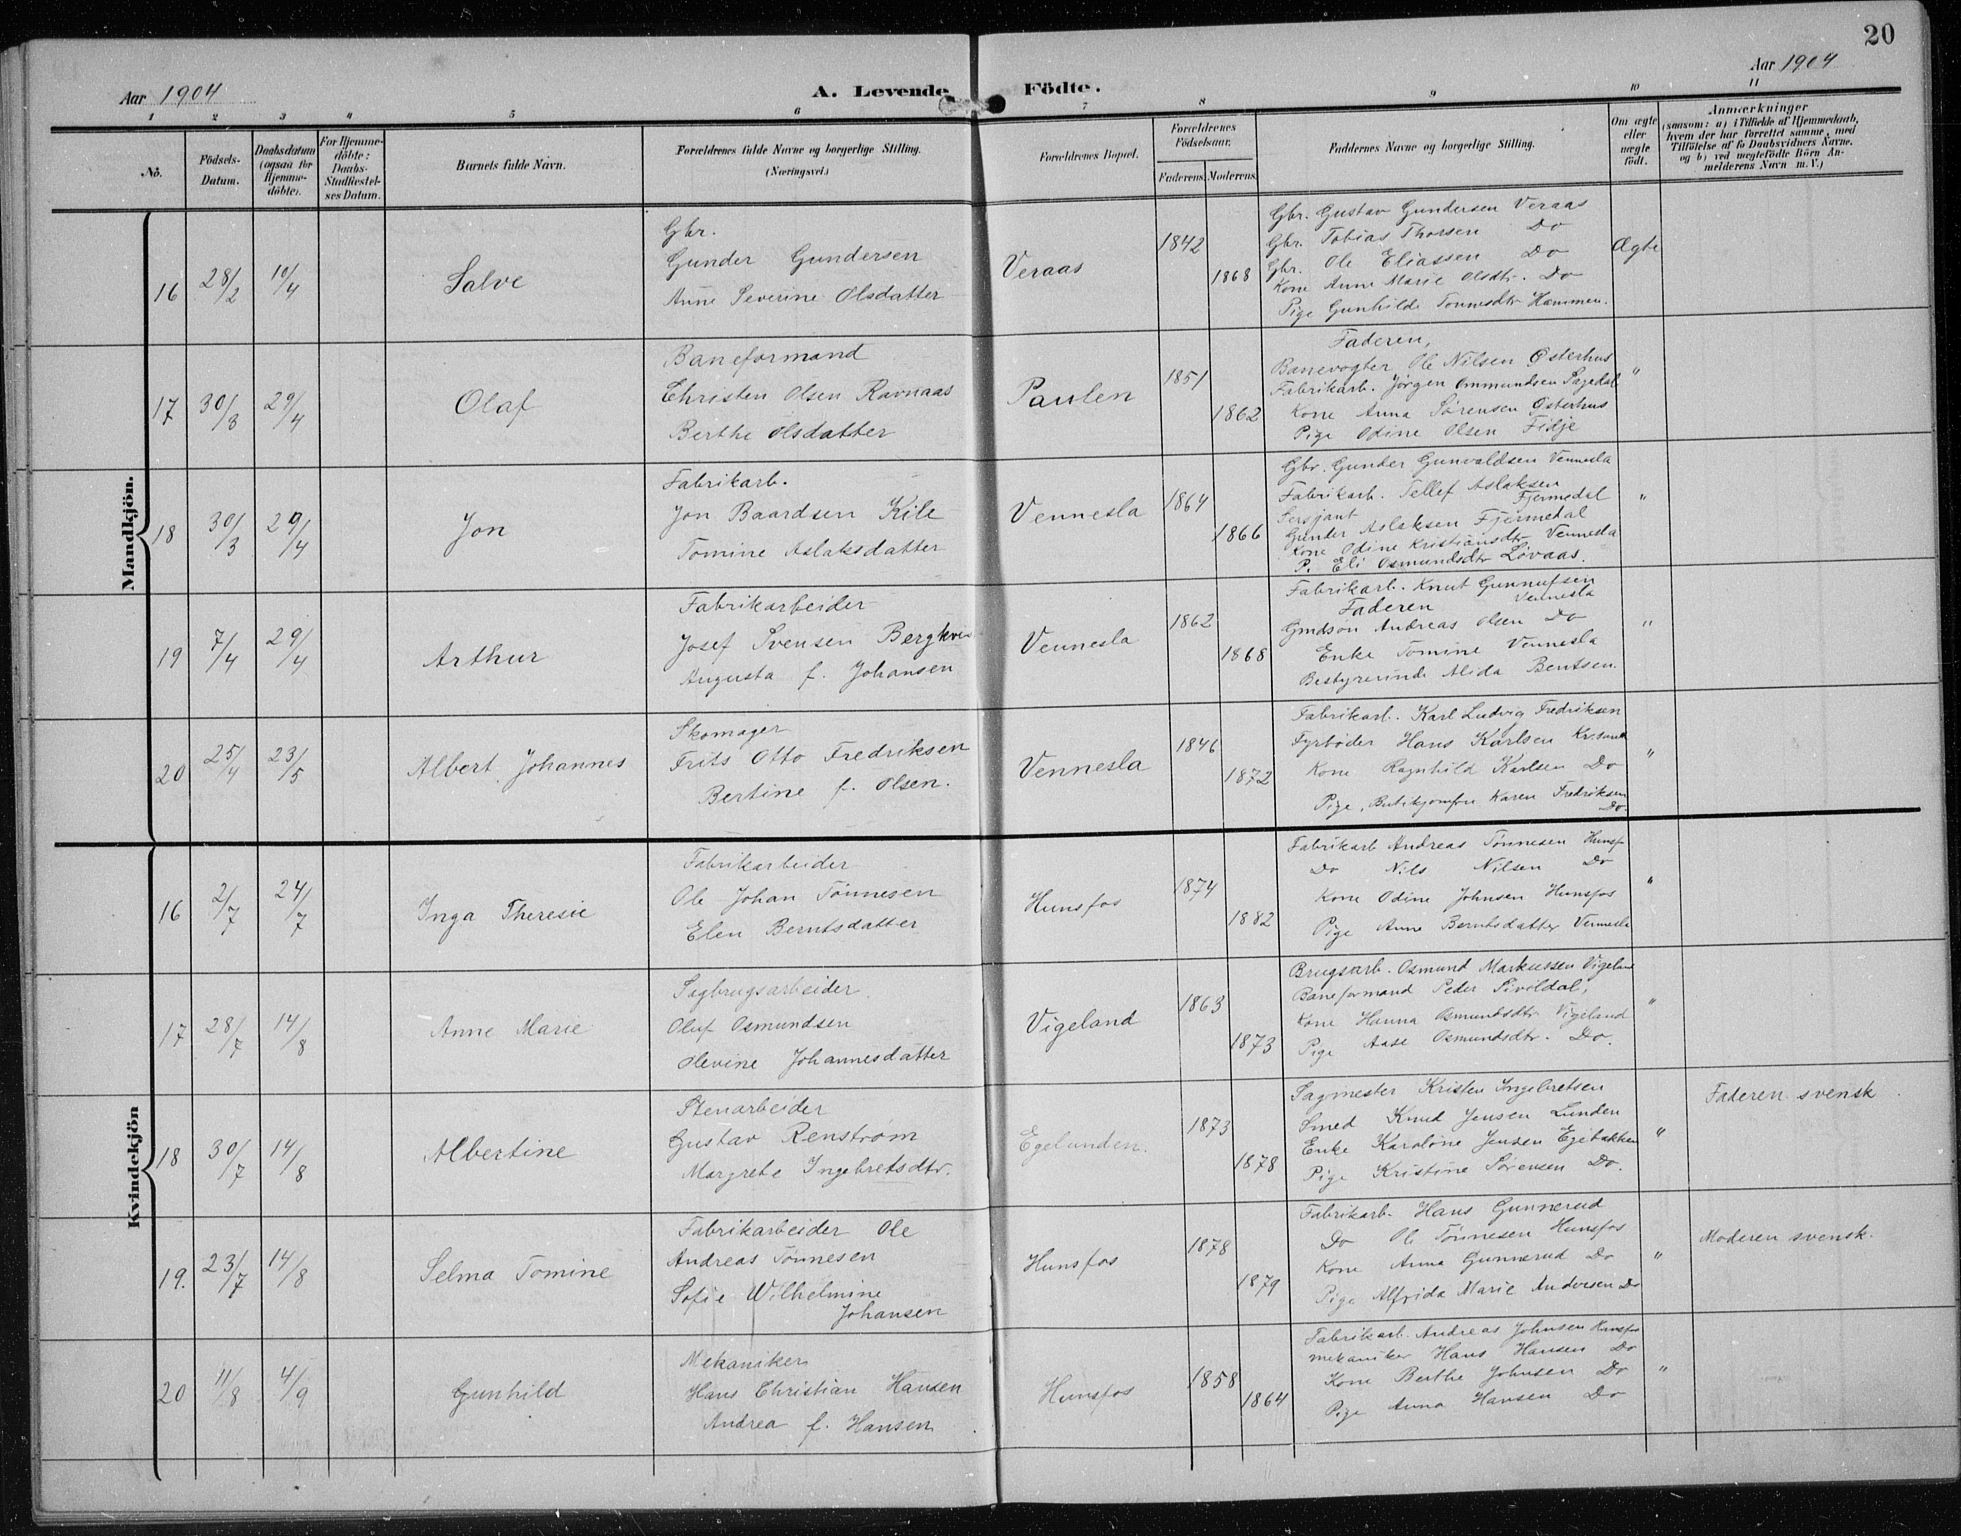 20
Aar 1904
A. Levende Födte.
Aar 1904
1 2 3 4 5 6 7 8 9 10 11
No.
Födsels-Datum.
Daabsdatum (ogsaa for Hjemmedöbte).
For Hjemmedöbte: Daabs-Stadfæstelses Datum.
Barnets fulde Navn.
Forældrenes fulde Navne og borgerlige Stilling.
(Næringsvei.)
Forældrenes Bopæl.
Forældrenes Födselsaar.
Faderens. Moderens.
Faddernes Navne og borgerlige Stilling.
Om ægte eller uægte födt.
Anmærkninger
(saasom: a) i Tilfælde af Hjemmedaab, hvem der har forrettet samme, med Tilföielse af to Daabsvidners Navne, og b) ved uægtefödte Börn Anmelderens Navn m. V.)
Mandkjön.
16 28/2 10/4 Salve
Gbr.
Gunder Gundersen
Anne Severine Olsdatter
Veraas 1842 1868
Gbr. Gustav Gundersen Veraas
Gbr. Tobias Thorsen Do
Gbr. Ole Eliassen Do
Kone Anne Marie Olsdtr. Do
Pige Gunhilde Tonnesdtr Hammen.
Ægte
17 30/3 29/4 Olaf
Baneformand
Christen Olsen Ravnaas
Berthe Olsdatter
Paulen 1851 1862
Faderen,
Banevogter Ole Nilsen Østerhus
Fabrikarb. Jørgen Ommundsen Sagedal
Kone Anna Sørensen Østerhus
Pige Odine Olsen Fidje
"
18 30/3 29/4 Jon
Fabrikarb.
Jon Baardsen Kile
Tomine Aslaksdatter
Vennesla 1864 1866
Gbr. Gunder Gunvaldsen Vennesla
Fabrikarb. Tellef Aslaksen
Fjermedal
Sersjant
Gunder Aslaksen Fjermedal
Kone Odine Kristiansdtr Vennesla
P. Eli Osmundsdtr Løvaas.
"
19 7/4 29/4 Arthur
Fabrikarbeider
Josef Svensen
Augusta f. Johansen
Vennesla 1862 1868
Fabrikarb. Knut Gunnufsen
Vennesla
Faderen
Gmdsøn Andreas Olsen Do
Enke Tomine Vennesla
Bestyrerinde Alida Bentsen
"
20 25/4 23/5 Albert Johannes
Skomager
Frits Otto Fredriksen
Bertine f. Olsen.
Vennesla 1846 1872
Fabrikarb. Karl Ludvig Fredriksen
Fyrbøder Hans Karlsen
Kone Ragnhild Karlsen Do
Pige, Butikjomfru Karen Fredriksen
Do.
"
Kvindekjön
16 2/7 24/7 Inga Theresie
Fabrikarbeider
Ole Johan Tönnesen
Elen Berntsdatter
Hunsfos 1874 1882
Fabrikarb Andreas Tønnesen Hunsf.
Do Nils Nilsen Do
Kone Odine Johnsen Hunsfos
Pige Anne Berntsdatter Vennesla
"
17 28/7 14/8 Anne Marie
Sagbrugsarbeider
Oluf Osmundsen
Olevine Johannesdatter
Vigeland 1863 1873
Brugsarb. Osmund Markussen Vigeland
Baneformand Peder
Kone Hanna Osmundsdtr Vigeland
Pige Aase Osmundsdtr. Do.
"
18 30/7 14/8 Albertine
Stenarbeider
Gustav Renstrøm
Margrete Ingebretsdtr.
Egelunden. 1873 1878
Sagmester Kristen Ingebretsen
Smed Knud Jensen Lunden
Enke Karoline Jensen Egebakken
Pige Kristine Sørensen Do.
"
Faderen svensk
19. 23/7 14/8 Selma Tomine
Fabrikarbeider Ole
Andreas Tönnesen
Sofie Wilhelmine
Johansen
Hunsfos 1878 1879
Fabrikarb. Hans Gunnerud
Do Ole Tönnesen Hunsfos
Kone Anna Gunnerud Do
Pige Alfrida Marie Andersen Do
"
Moderen svensk.
20 11/8 4/9 Gunhild
Mekaniker
Hans Christian Hansen
Andrea f. Hansen
Hunsfos 1858 1864
Fabrikarb. Andreas Johnsen Hunsfos
mekaniker Hans Hansen Do
Kone Berthe Johnsen Do
Pige Anna Hansen Do
"